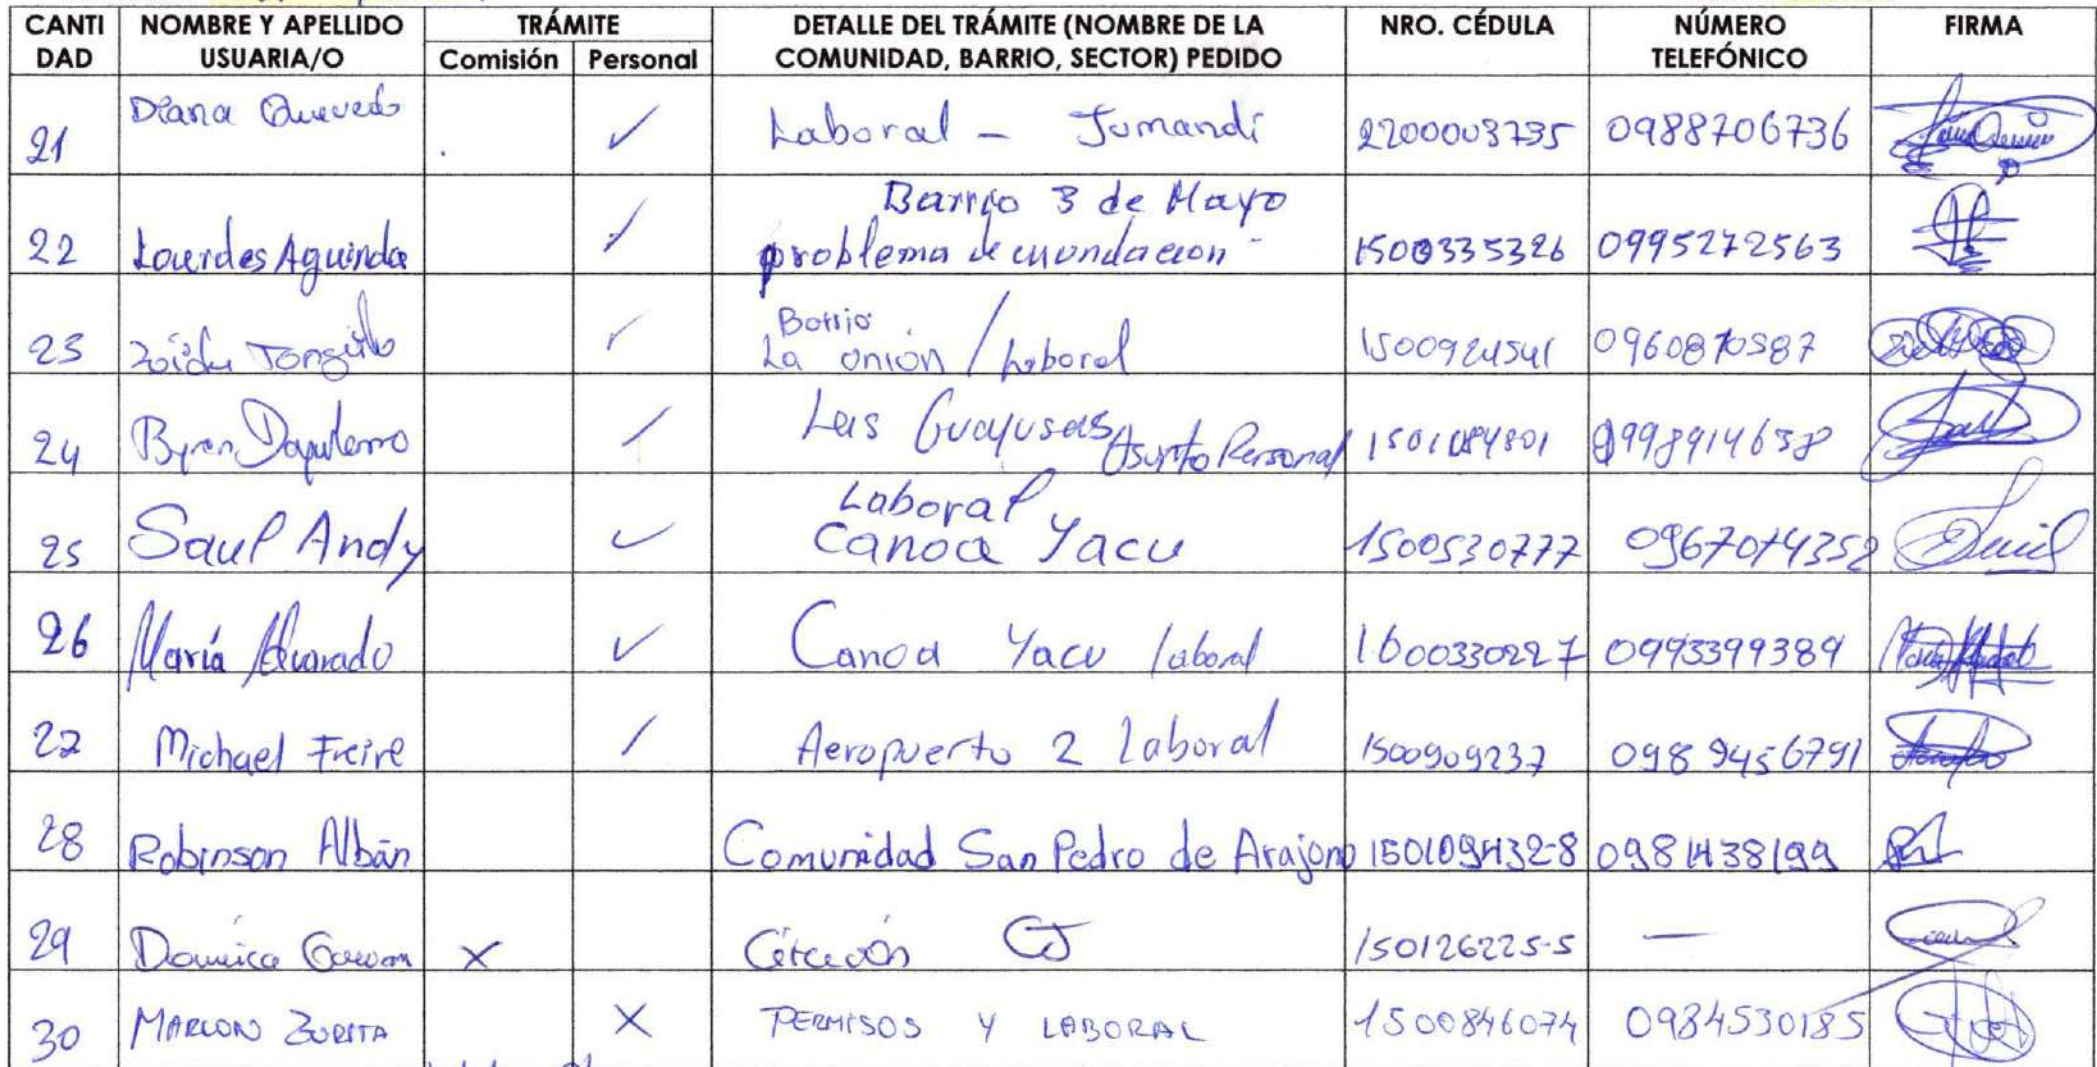 CANTIDAD NOMBRE Y APELLIDO USUARIA/O TRÁMITE Comisión Personal DETALLE DEL TRÁMITE (NOMBRE DE LA COMUNIDAD, BARRIO, SECTOR) PEDIDO NRO. CÉDULA NÚMERO TELEFÓNICO FIRMA
21 Diana Quevedo ✓ Laboral - Jumandi 2200003735 0988706736
22 Lourdes Aguinda ✓ Barrio 3 de Mayo problema de inundacion 1500335326 0995272563
23 Zoida ✓ Barrio La Union / Laboral 1500924541 0960870587
24 Byron ✓ Las Guayusas Asunto Personal 1501084801
25 Saul Andy ✓ Laboral Canoa Yacu 1500530777 0967074352
26 María Alvarado ✓ Canoa Yacu laboral 1600330227 0993399389
27 Michael Freire ✓ Aeropuerto 2 Laboral 1500909237 0989456791
28 Robinson Albán Comunidad San Pedro de Arajuno 150109432-8 0981438199
29 X 150126225-5 —
30 MARLON ZURITA X PERMISOS Y LABORAL 1500846074 0984530185